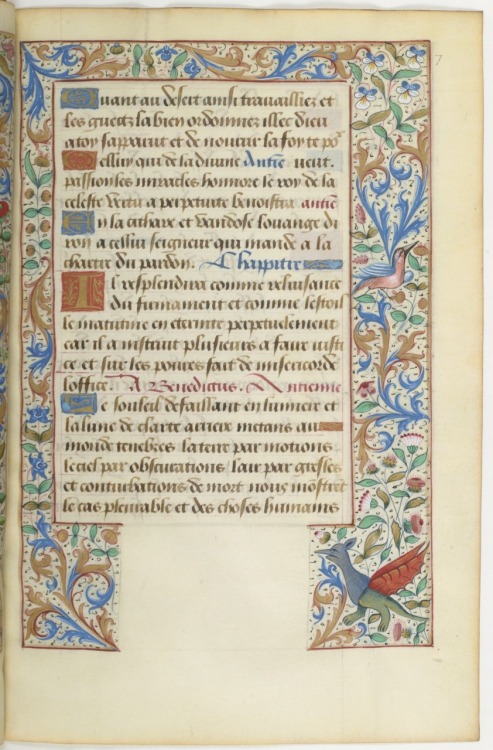 Quant au desert ainsi travaillez et
les guettz la bien ordonnez illec dieu
a toy sapparut et de nourrir la foy te po
Celluy qui de la divine Antiē veut.
passion les miracles honnore le roy de la
celeste vertu a perpetuite benoistra antiē
En la cithare et doulose louange di
ron a cellui seigneur qui mande a la
chartre du pardon. Chappitre
Il resplendira comme reluisance
du firmament et comme lestoil
le matutine en eternite perpetuelement
car il a instruit plusieurs a faire iusti
ce et sur les povres fait de misericorde
loffice. A Benedictus. Antienne
Le souleil defaillant en lumiere et
la lune de clarte arriere metans au
monde tenebres la terre par motions
le ciel par obscurations lair par gresles
et conturbations de mort nous mōstrēt
le cas pleurable et des choses humains